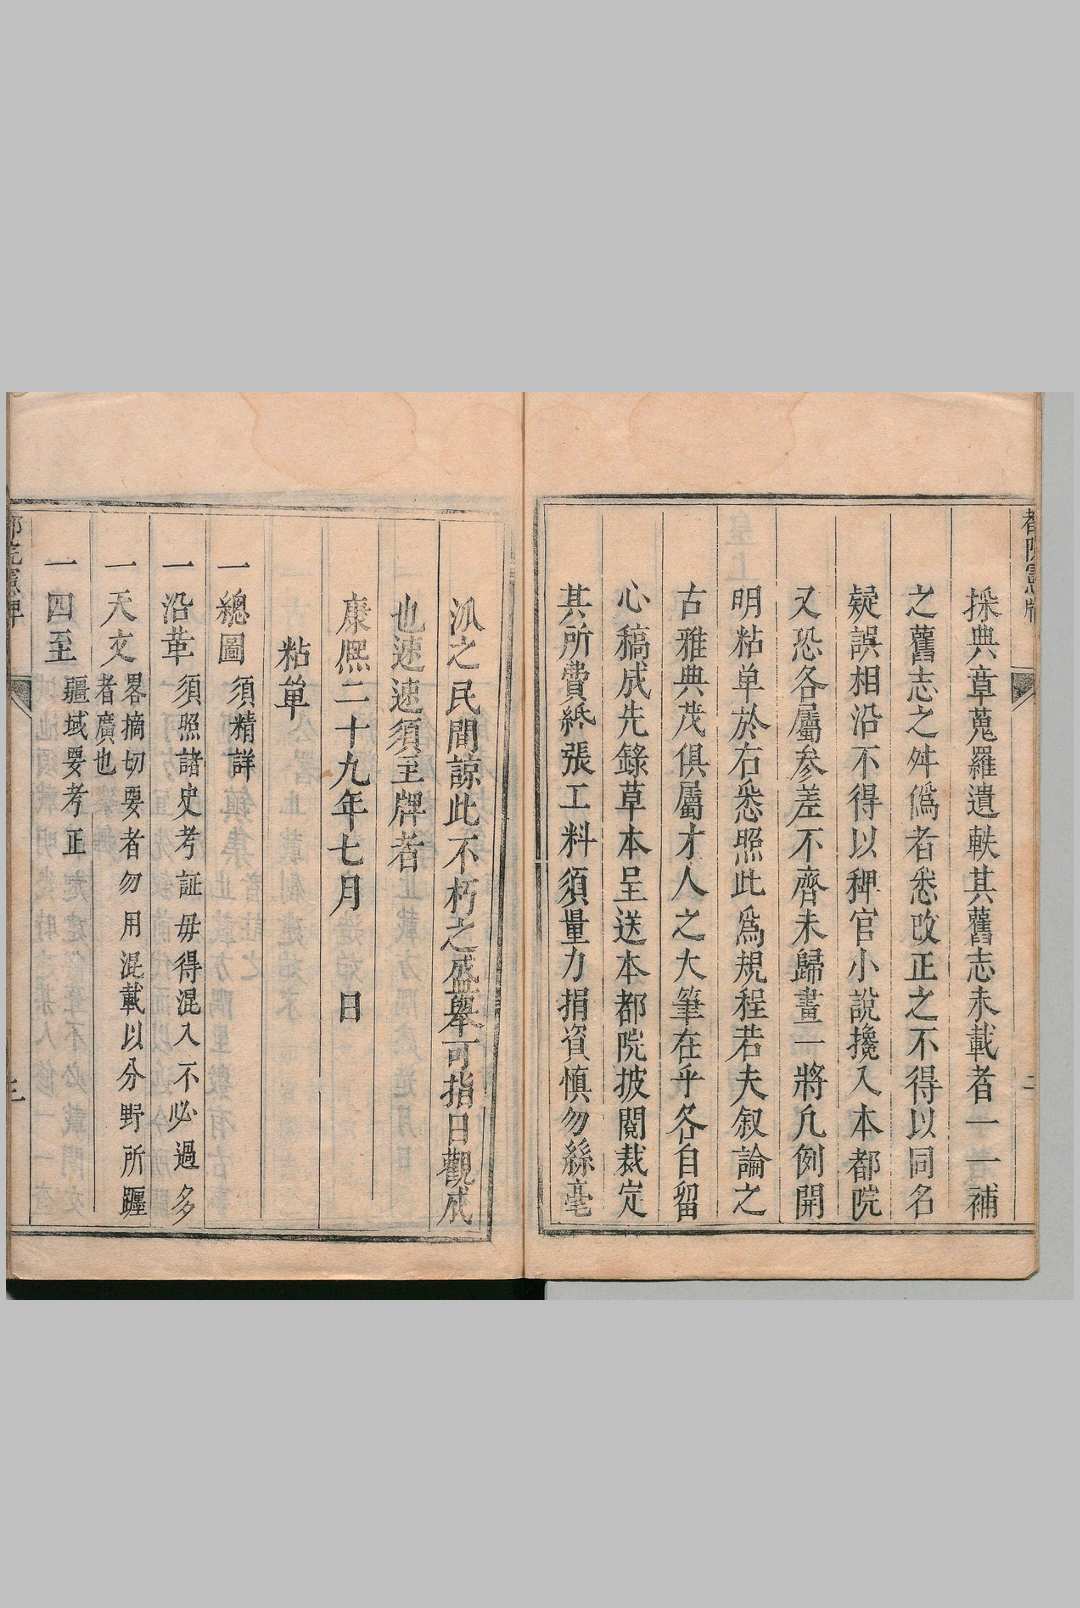 都院憲牌
二
採典章蒐羅遺軼其舊志未載者一一補
之舊志之舛僞者悉改正之不得以同名
疑誤相沿不得以稗官小說攙入本都院
又恐各屬參差不齊未歸畫一將凡例開
明粘单於右悉照此爲規程若夫叙論之
古雅典茂俱屬才人之大筆在乎各自留
心稿成先錄草本呈送本都院披閱裁定
其所費紙張工料須量力捐資慎勿絲毫
汎之民間諒此不朽之盛舉可指日觀成
也速速須至牌者
康熙二十九年七月 日
粘單
一總圖 須精詳
一沿革 須照諸史考証毋得混入不必過多
一天文 畧摘切要者勿用混載以分野所躔
者廣也
一四至 疆域要考正
都院憲牌
三